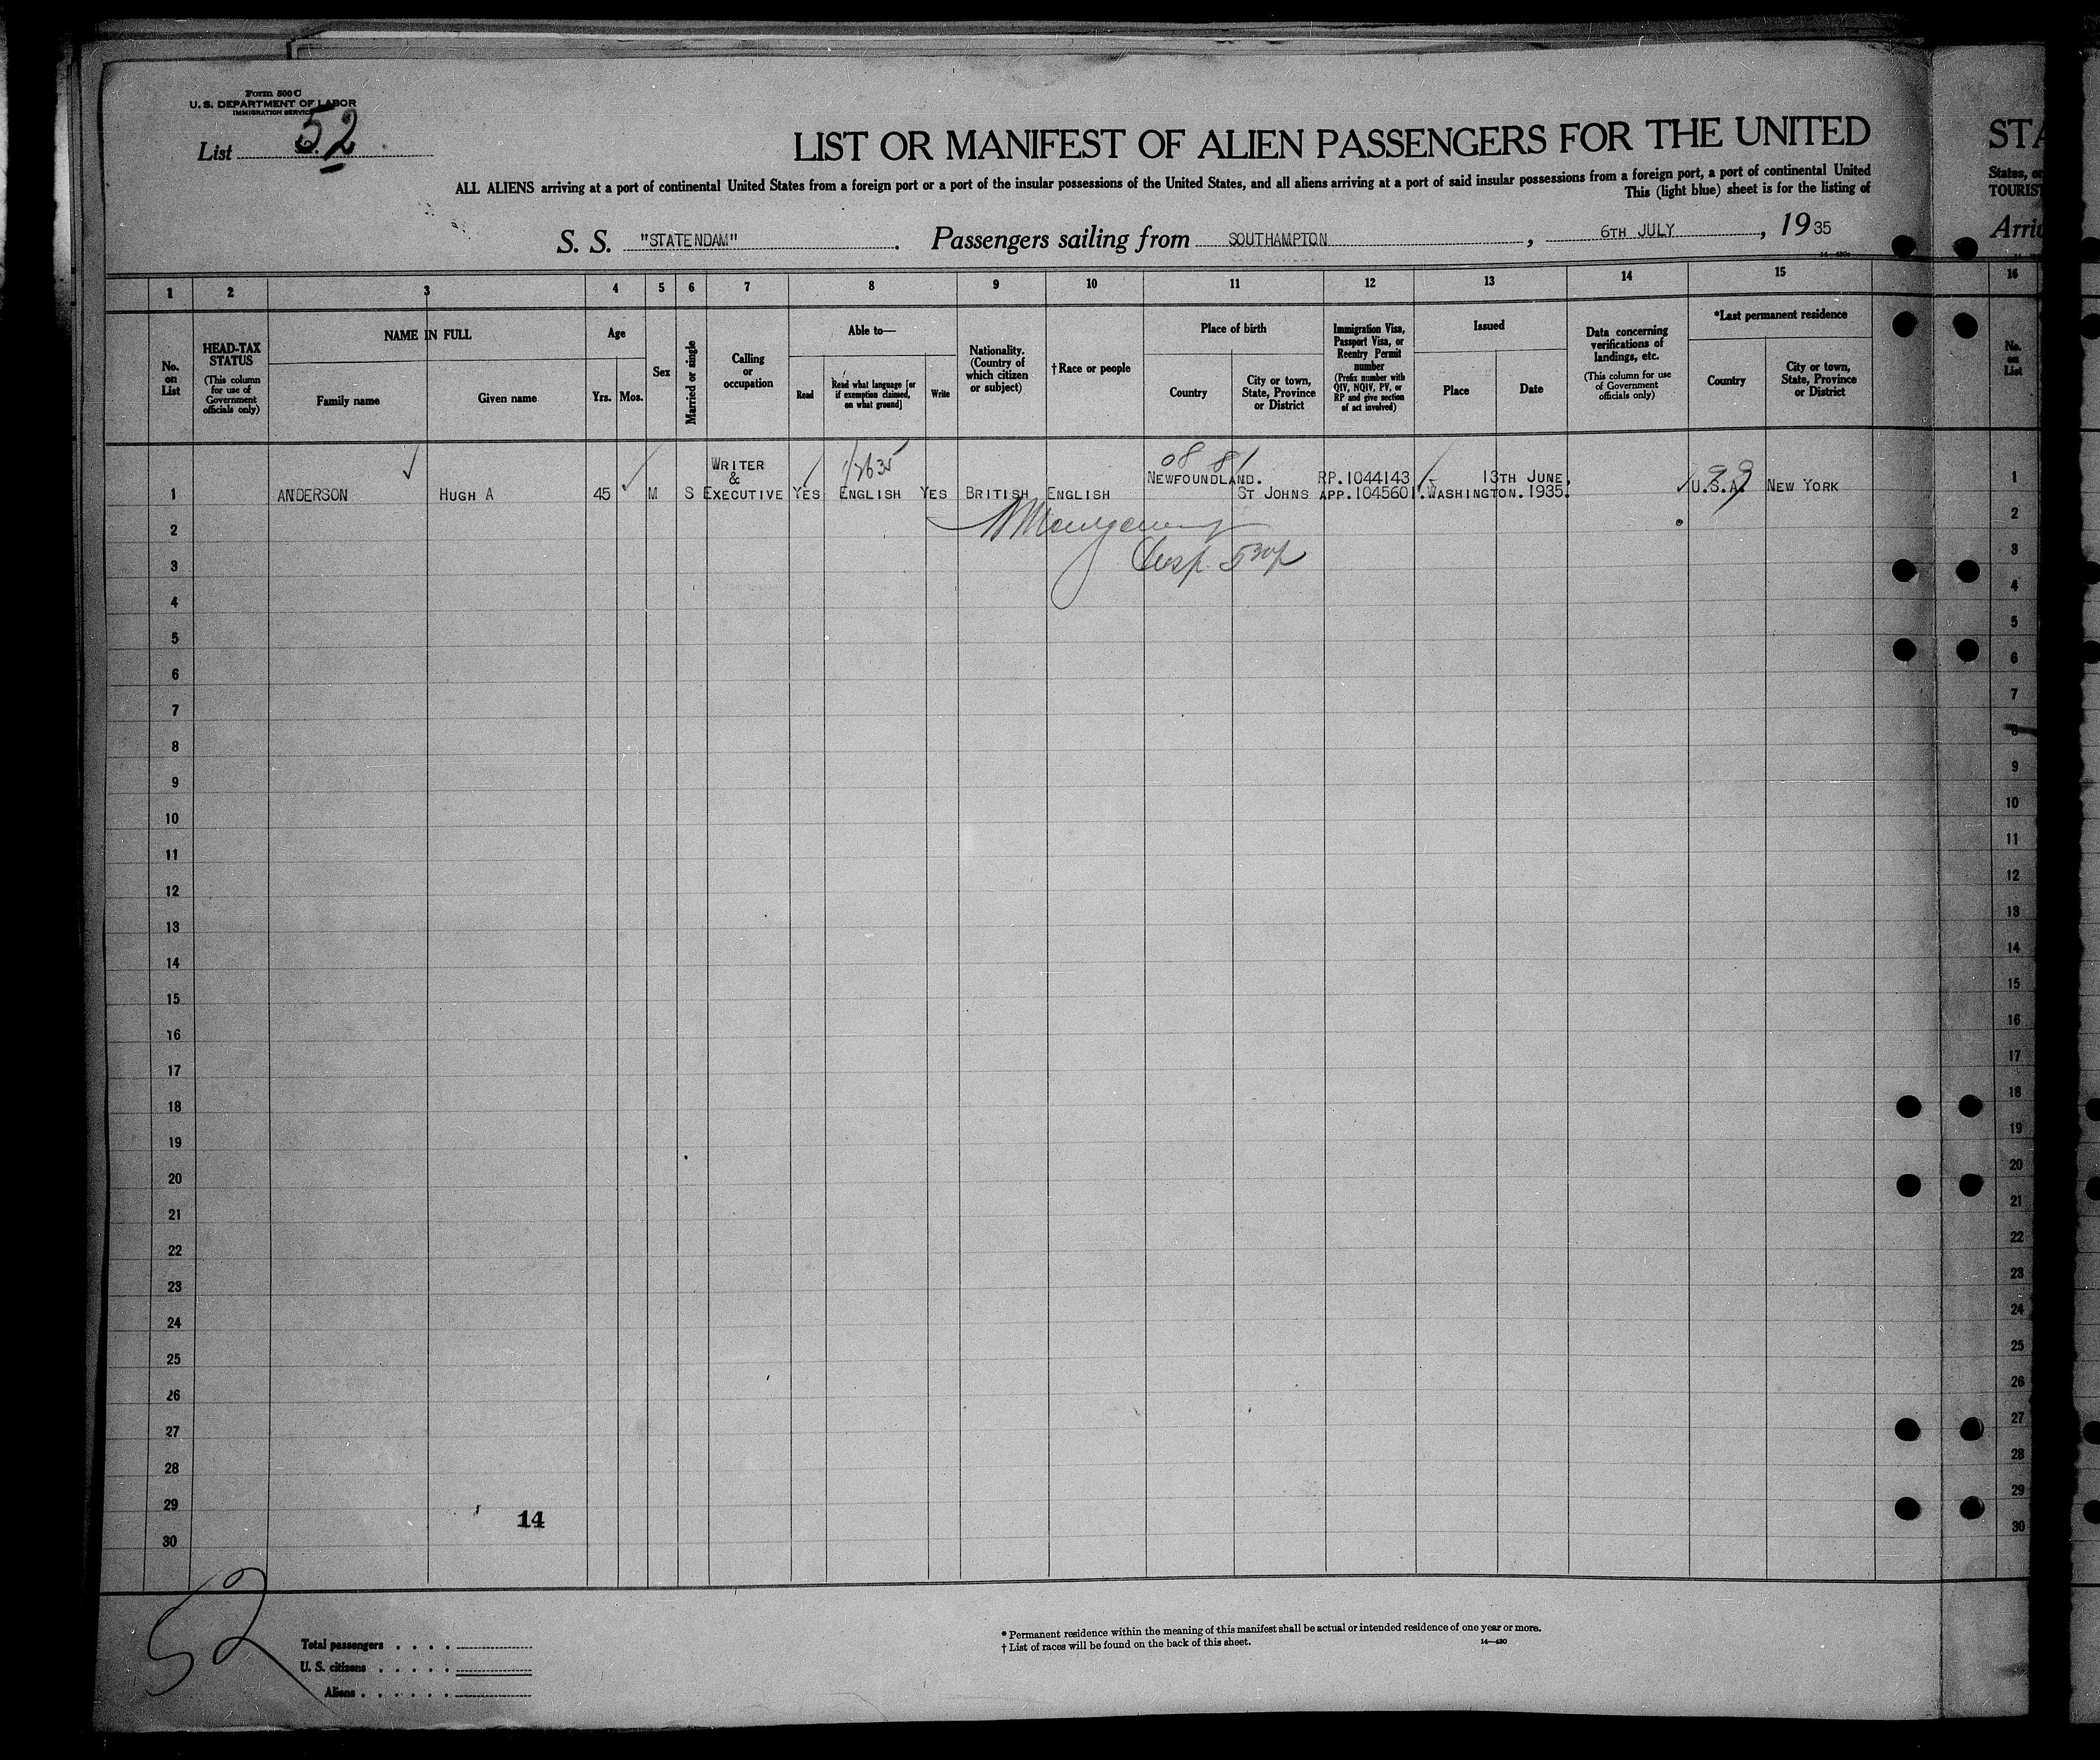 Form 500 C
U. S. DEPARTMENT OF LABOR
IMMIGRATION SERVICE
List 52
LIST OR MANIFEST OF ALIEN PASSENGERS FOR THE UNITED
STA
ALL ALIENS arriving at a port of continental United States from a foreign port or a port of the insular possessions of the United States, and all aliens arriving at a port of said insular possessions from a foreign port, a port of continental United
States, or
This (light blue) sheet is for the listing of
TOURIST
S. S. "STATENDAM" . Passengers sailing from SOUTHAMPTON , 6TH JULY , 1935
Arri
1 2 3 4 5 6 7 8 9 10 11 12 13 14 15 16
No. on List
HEAD-TAX STATUS
(This column for use of Government officials only)
NAME IN FULL
Family name
Given name
Age
Yrs. Mos.
Sex
Married or single
Calling or occupation
Able to—
Read
Read what language [or if exemption claimed, on what ground]
Write
Nationality. (Country of which citizen or subject)
† Race or people
Place of birth
Country
City or town, State, Province or District
Immigration Visa, Passport Visa, or Reentry Permit number
(Prefix number with QIV, NQIV, PV, or RP and give section of act involved)
Issued
Place
Date
Data concerning verifications of landings, etc.
(This column for use of Government officials only)
*Last permanent residence
Country
City or town, State, Province or District
No. on List
08 81
99
WRITER
&
NEWFOUNDLAND. RP.1044143 13TH JUNE.
1 ANDERSON HUGH A 45 M S EXECUTIVE YES ENGLISH YES BRITISH ENGLISH ST JOHNS APP.1045601.WASHINGTON.1935. U.S.A. NEW YORK 1
2 2
3 3
4 4
5 5
6 6
7 7
8 8
9 9
10 10
11 11
12 12
13 13
14 14
15 15
16 16
17 17
18 18
19 19
20 20
21 21
22 22
23 23
24 24
25 25
26 26
27 27
28 28
29 29
14
30 30
52
Total passengers . . . .
U. S. citizens . . . . .
Aliens . . . . . .
* Permanent residence within the meaning of this manifest shall be actual or intended residence of one year or more.
† List of races will be found on the back of this sheet.
14—430